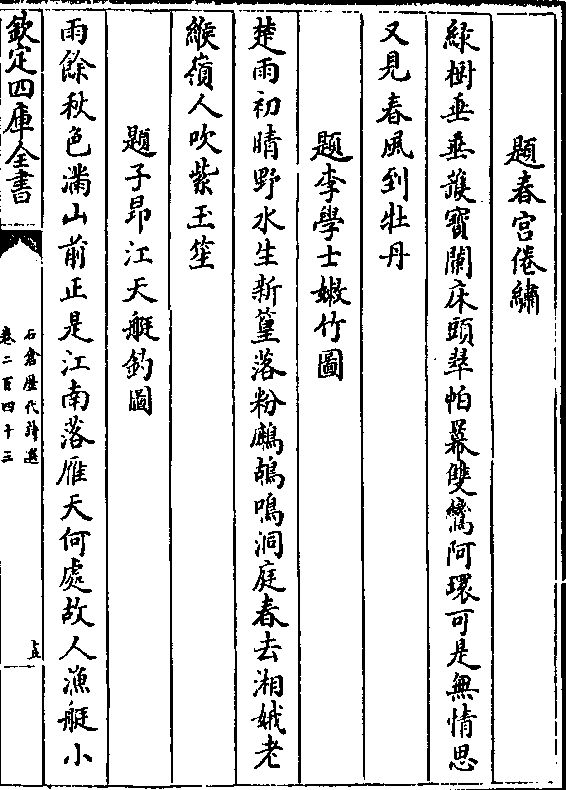 題春宫倦繡
緑樹垂垂護寶闌床頭翠帕幕雙鸞阿環可是無情思
又見春風到牡丹
題李學士嫩竹圖
楚雨初晴野水生新篁落粉鷓鴣鳴洞庭春去湘娥老
緱嶺人吹紫玉笙
題子昂江天艇釣圖
雨餘秋色滿山前正是江南落雁天何處故人漁艇小
欽定四庫全書
石倉歷代詩選
卷二百四十三